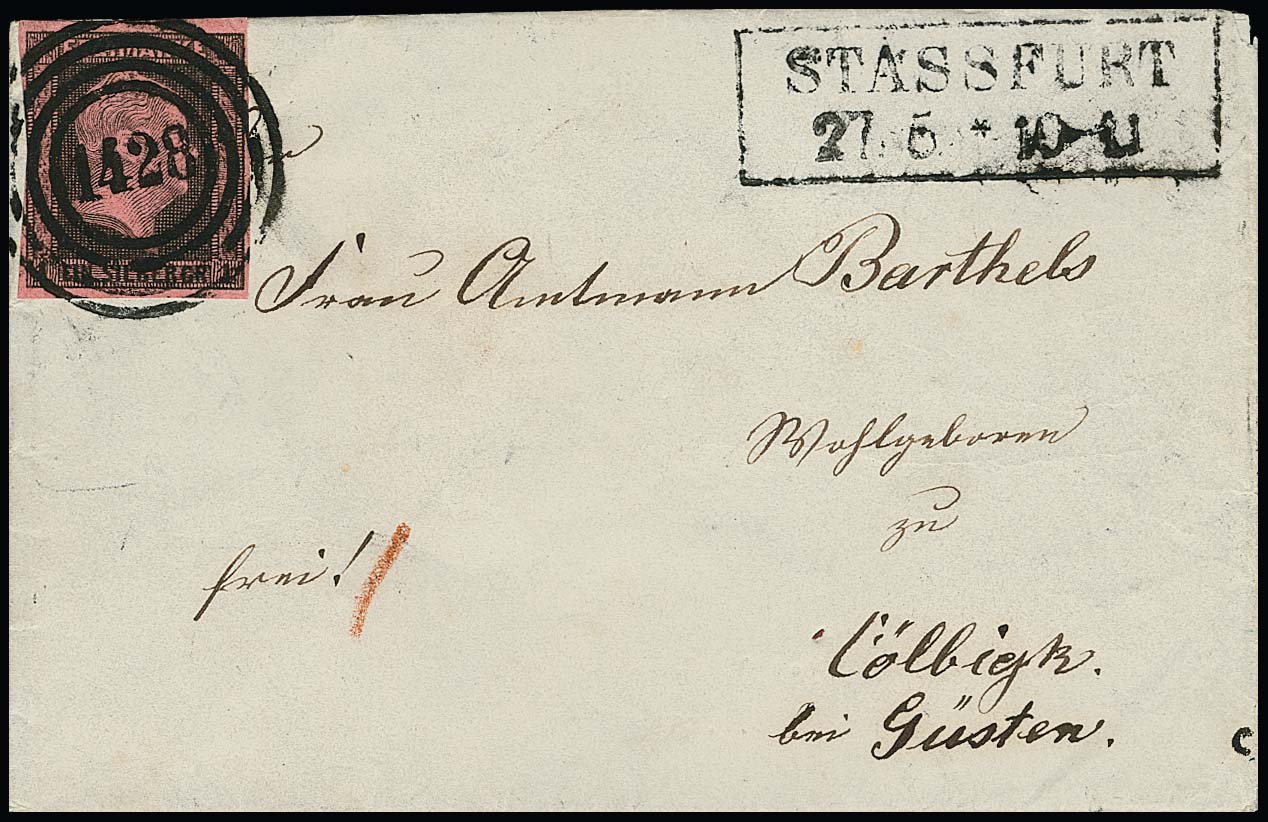 1428
EIN SILBERGR.
STASSFURT
27 5 * 10-11
Frau Amtmann Barthels
Wohlgeboren
zu
frei!
Cölbigk.
bei Güsten.